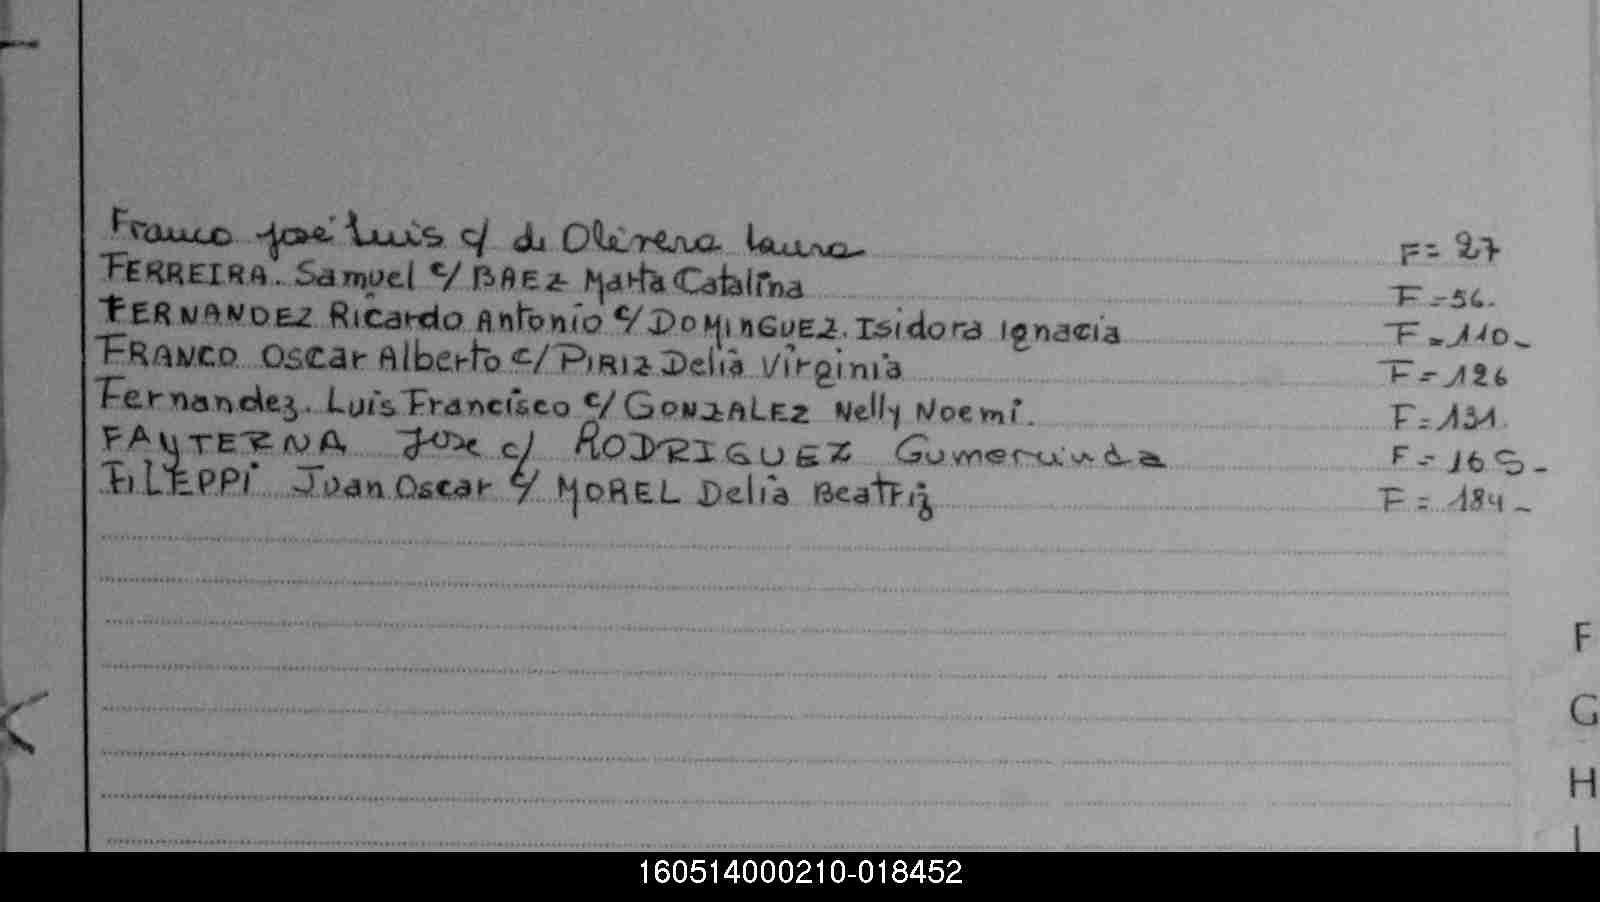 Franco José Luis c/ de Olivera Laura F=27
FERREIRA. Samuel c/ BAEZ Marta Catalina F=56.
FERNANDEZ Ricardo Antonio c/ DOMINGUEZ. Isidora Ignacia F=110-
FRANCO Oscar Alberto c/ PIRIZ Delia Virginia F=126
Fernandez. Luis Francisco c/ GONZALEZ Nelly Noemi. F=131.
FAYTERNA Jose c/ RODRIGUEZ Gumercinda F=165-
FILEPPI Juan Oscar c/ MOREL Delia Beatriz F=184-
F
G
H
I
160514000210-018452